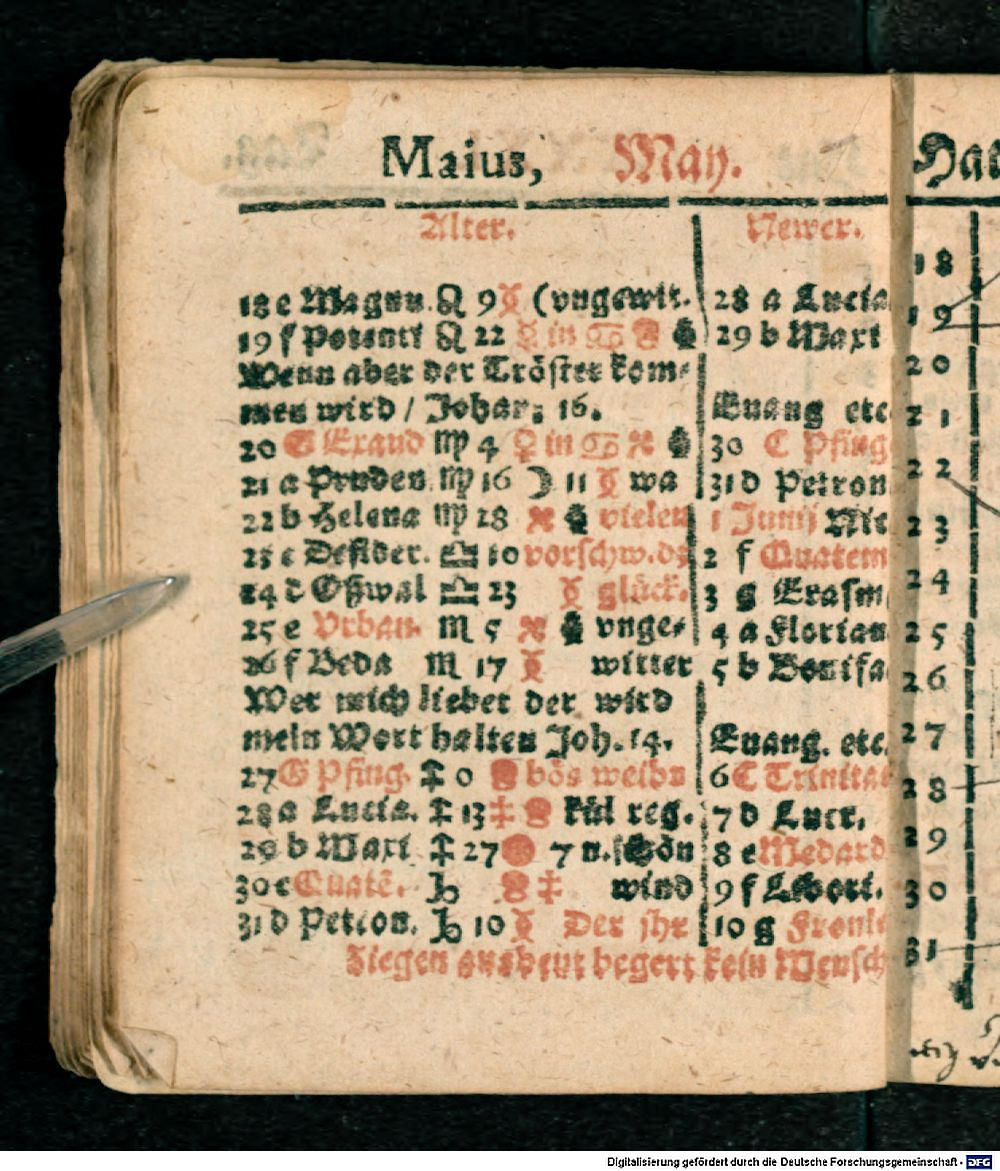 Maius, May.
Alter. Newer.
18 e Magnu. ♌ 9 ☿ (vngewit. 28 a Lucia
19 f Potenti ♌ 22 in ♋ 29 b Maxi
Wenn aber der Tröster kom⸗
men wird / Johan: 16. Euang etc
20 G Exaud ♍ 4 ♀ in ♋ 30 C Pfing
21 a Pruden. ♍ 16 ☽ 11 wa 31 d Petron
22 b Helena ♍ 28 vielen 1 Junij Nic
23 c Desider. ♎ 10 vorschw. dz 2 f Quatem
24 d Oßwal ♎ 23 glück. 3 g Erasm
25 e Vrban. ♏ 5 vnge⸗ 4 a Florian
26 f Beda ♏ 17 witter 5 b Bonifa
Wer mich lieber der wird
mein Wort halten Joh. 14. Euang. etc.
27 G Pfing. ♐ 0 bös weibs 6 C Trinitat
28 a Lucia. ♐ 13 kül reg. 7 d Lucr.
29 b Maxi ♐ 27 7 n. schön 8 e Medard
30 c Quatē. ♑ wind 9 f Libori.
31 d Petron. ♑ 10 Der jhr 10 g Fronl
Ziegen begert kein Mensch
18
19
20
21
22
23
24
25
26
27
28
29
30
31
Digitalisierung gefördert durch die Deutsche Forschungsgemeinschaft - DFG